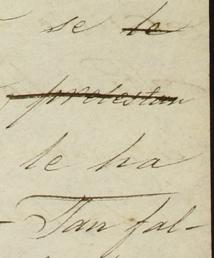 se lo
protestan
le ha
- Tan fal-